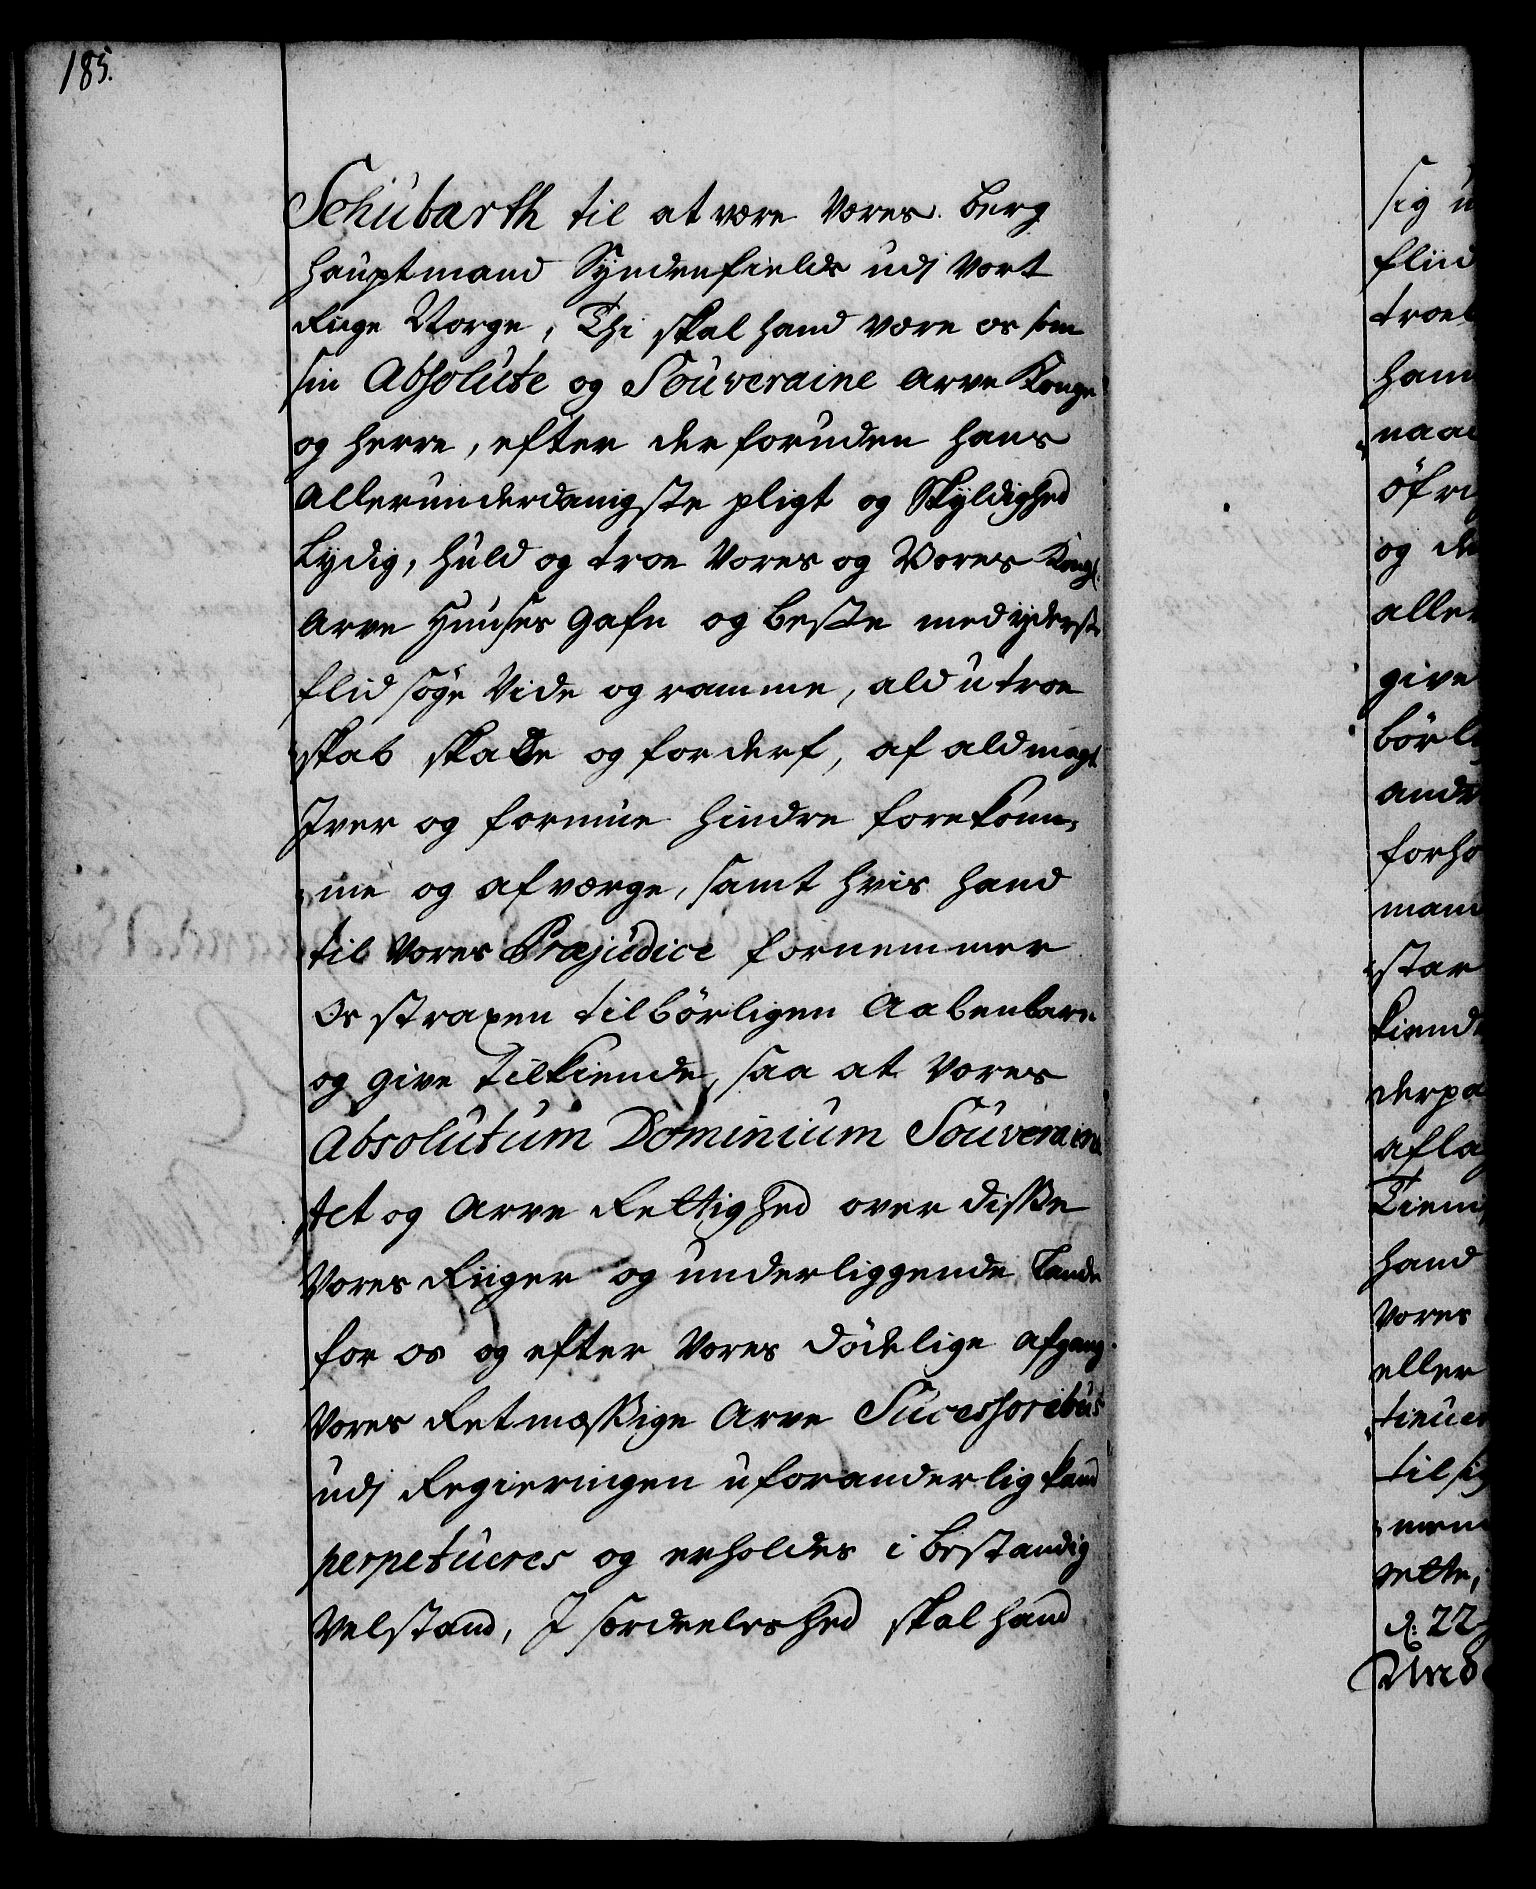 185.
Schubarth til at være Vores Berg
Hauptmand Syndenfields udj Vort
Riige Norge, Thi skal hand være os som
sin Absolute og Souveraine Arve Konge
og Herre, efter der foruden hans
Allerunderdanigste pligt og Skyldighed
Lydig, huld og troe Vores og Vores Kongl.
Arve Huuses Gafn og beste med yderste
flid søge Vide og ramme, ald utroe
skab skade og forderf, af ald magt
Iver og formue hindre forekom¬
me og afværge, samt hvis hand
til Vores Præjudice fornemmer
Os straxen tilbørligen Aabenbare
og give tilkiende, saa at Vores
Absolutum Dominium Souveraine
tet og Arve Rettighed over disse
Vores Riiger og underliggende Lande
for os og efter Vores dødelige afgang
Vores Retmæssige Arve Sucessoribus
udj Regieringen uforanderlig kand
perpetueres og erholdes i bestandig
Velstand, I særdeleshed skal hand
sig u
fliid
troe
ham
naad
öfri
og de
aller
give
börl
andr
forho
man
star
kiend
derpa
afla
Tiem
hand
Vores
eller
tinuer
til si
men
rette,
d: 22
Und